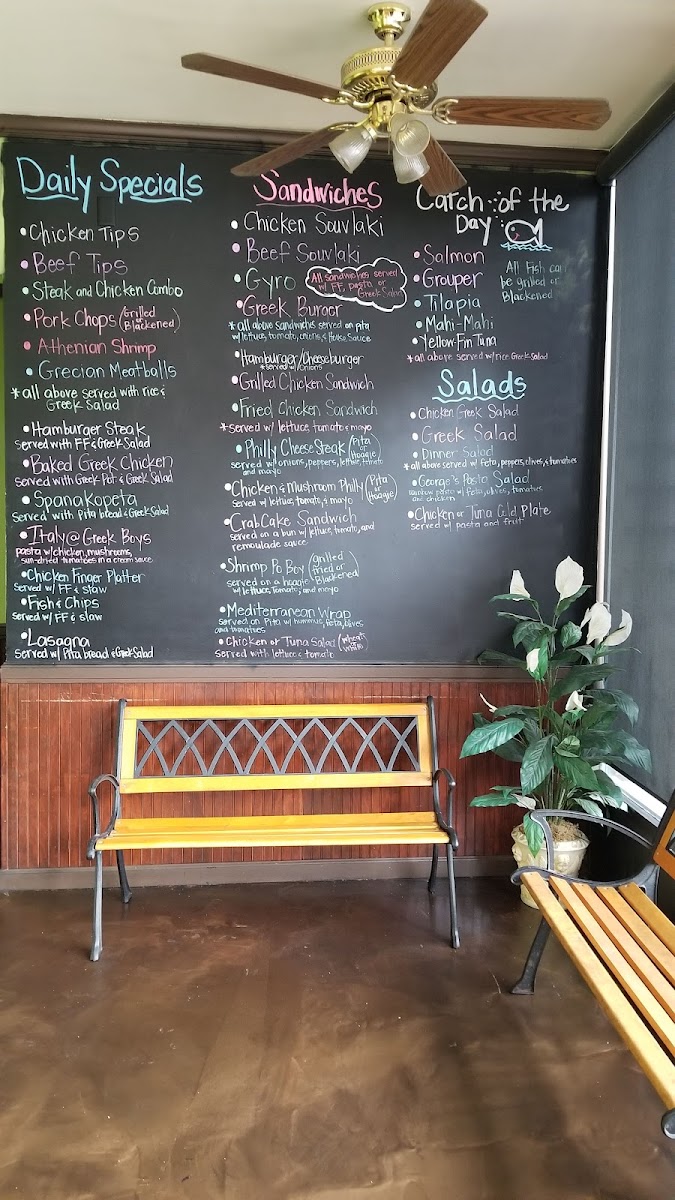 Daily Specials
•Chicken Tips
•Beef Tips
•Steak and Chicken Combo
•Pork Chops (Grilled or Blackened)
•Athenian Shrimp
•Grecian Meatballs
*all above served with rice &
Greek Salad
•Hamburger Steak
served with FF & Greek Salad
•Baked Greek Chicken
served with Greek Pot & Greek Salad
•Spanakopeta
served with Pita bread & Greek Salad
•Italy @ Greek Boys
pasta w/chicken, mushrooms,
sun-dried tomatoes in a cream sauce
•Chicken Finger Platter
served w/ FF & slaw
•Fish & Chips
served w/ FF & slaw
•Lasagna
served w/ Pita bread & Greek Salad
Sandwiches
•Chicken Souvlaki
•Beef Souvlaki
•Gyro
All sandwiches served
w/ FF, pasta or
Greek Salad
•Greek Burger
*all above sandwiches served on pita
w/ lettuce, tomato, onions, & House Sauce
•Hamburger/Cheeseburger
*served w/ onions
•Grilled Chicken Sandwich
•Fried Chicken Sandwich
*served w/ lettuce, tomato & mayo
•Philly Cheese Steak (Pita or Hoagie)
served w/ onions, peppers, lettuce, tomato
and mayo
•Chicken & Mushroom Philly (Pita or Hoagie)
served w/ lettuce, tomato, & mayo
•Crab Cake Sandwich
served on a bun w/ lettuce, tomato, and
remoulade sauce
•Shrimp Po Boy (grilled fried or Blackened)
served on a hoagie
w/ lettuce, tomato, and mayo
•Mediterranean Wrap
served on Pita w/ hummus, feta, olives
and tomatoes
•Chicken or Tuna Salad (wheat or white)
served with lettuce & tomato
Catch of the
Day
•Salmon
•Grouper
•Tilapia
•Mahi-Mahi
•Yellow-Fin Tuna
All Fish can
be grilled or
Blackened
*all above served w/ rice Greek Salad
Salads
•Chicken Greek Salad
•Greek Salad
•Dinner Salad
*all above served w/ feta, peppers, olives, & tomatoes
•George's Pasta Salad
rainbow pasta w/ feta, olives, tomatoes
and chicken
•Chicken or Tuna Cold Plate
served w/ pasta and fruit